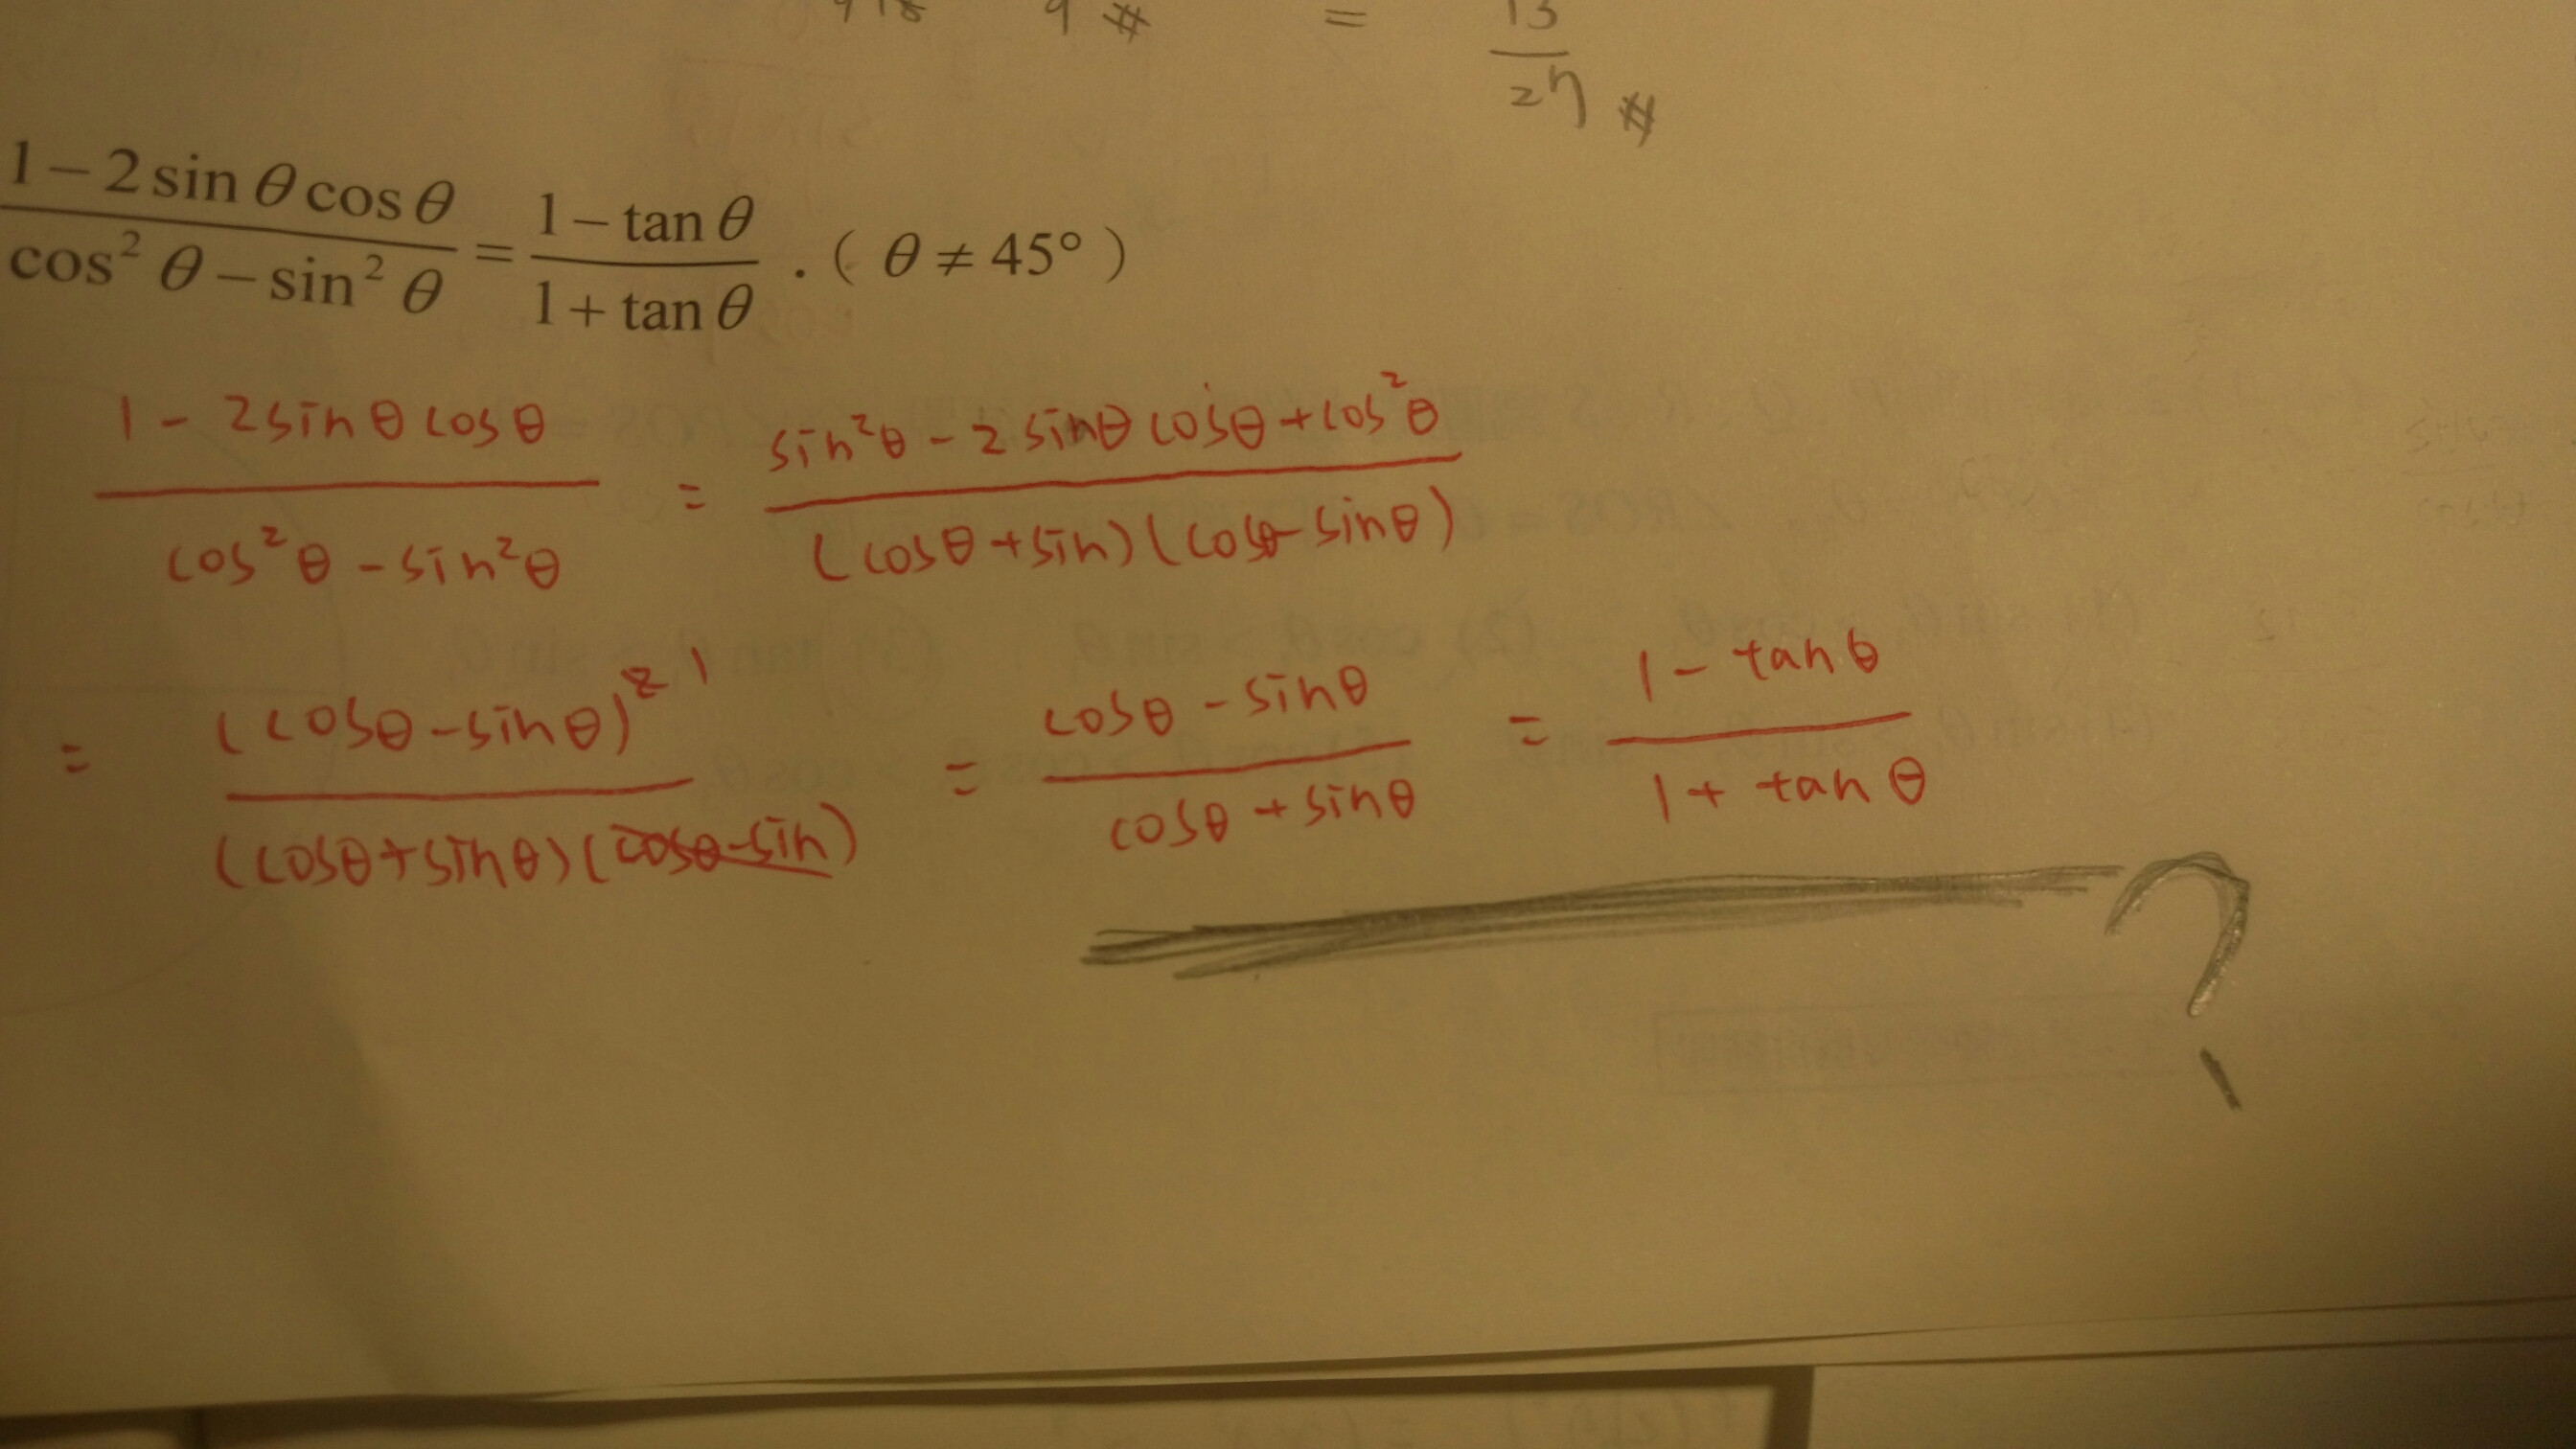 = 13/27 #
(1 - 2 sin θ cos θ)/(cos² θ - sin² θ) = (1 - tan θ)/(1 + tan θ) . ( θ ≠ 45° )
(1 - 2sinθ cosθ)/(cos²θ - sin²θ) = (sin²θ - 2sinθ cosθ + cos²θ)/((cosθ + sin)(cosθ - sinθ))
= (cosθ - sinθ)² ¹/((cosθ + sinθ)(cosθ - sin)) = (cosθ - sinθ)/(cosθ + sinθ) = (1 - tanθ)/(1 + tanθ)
?